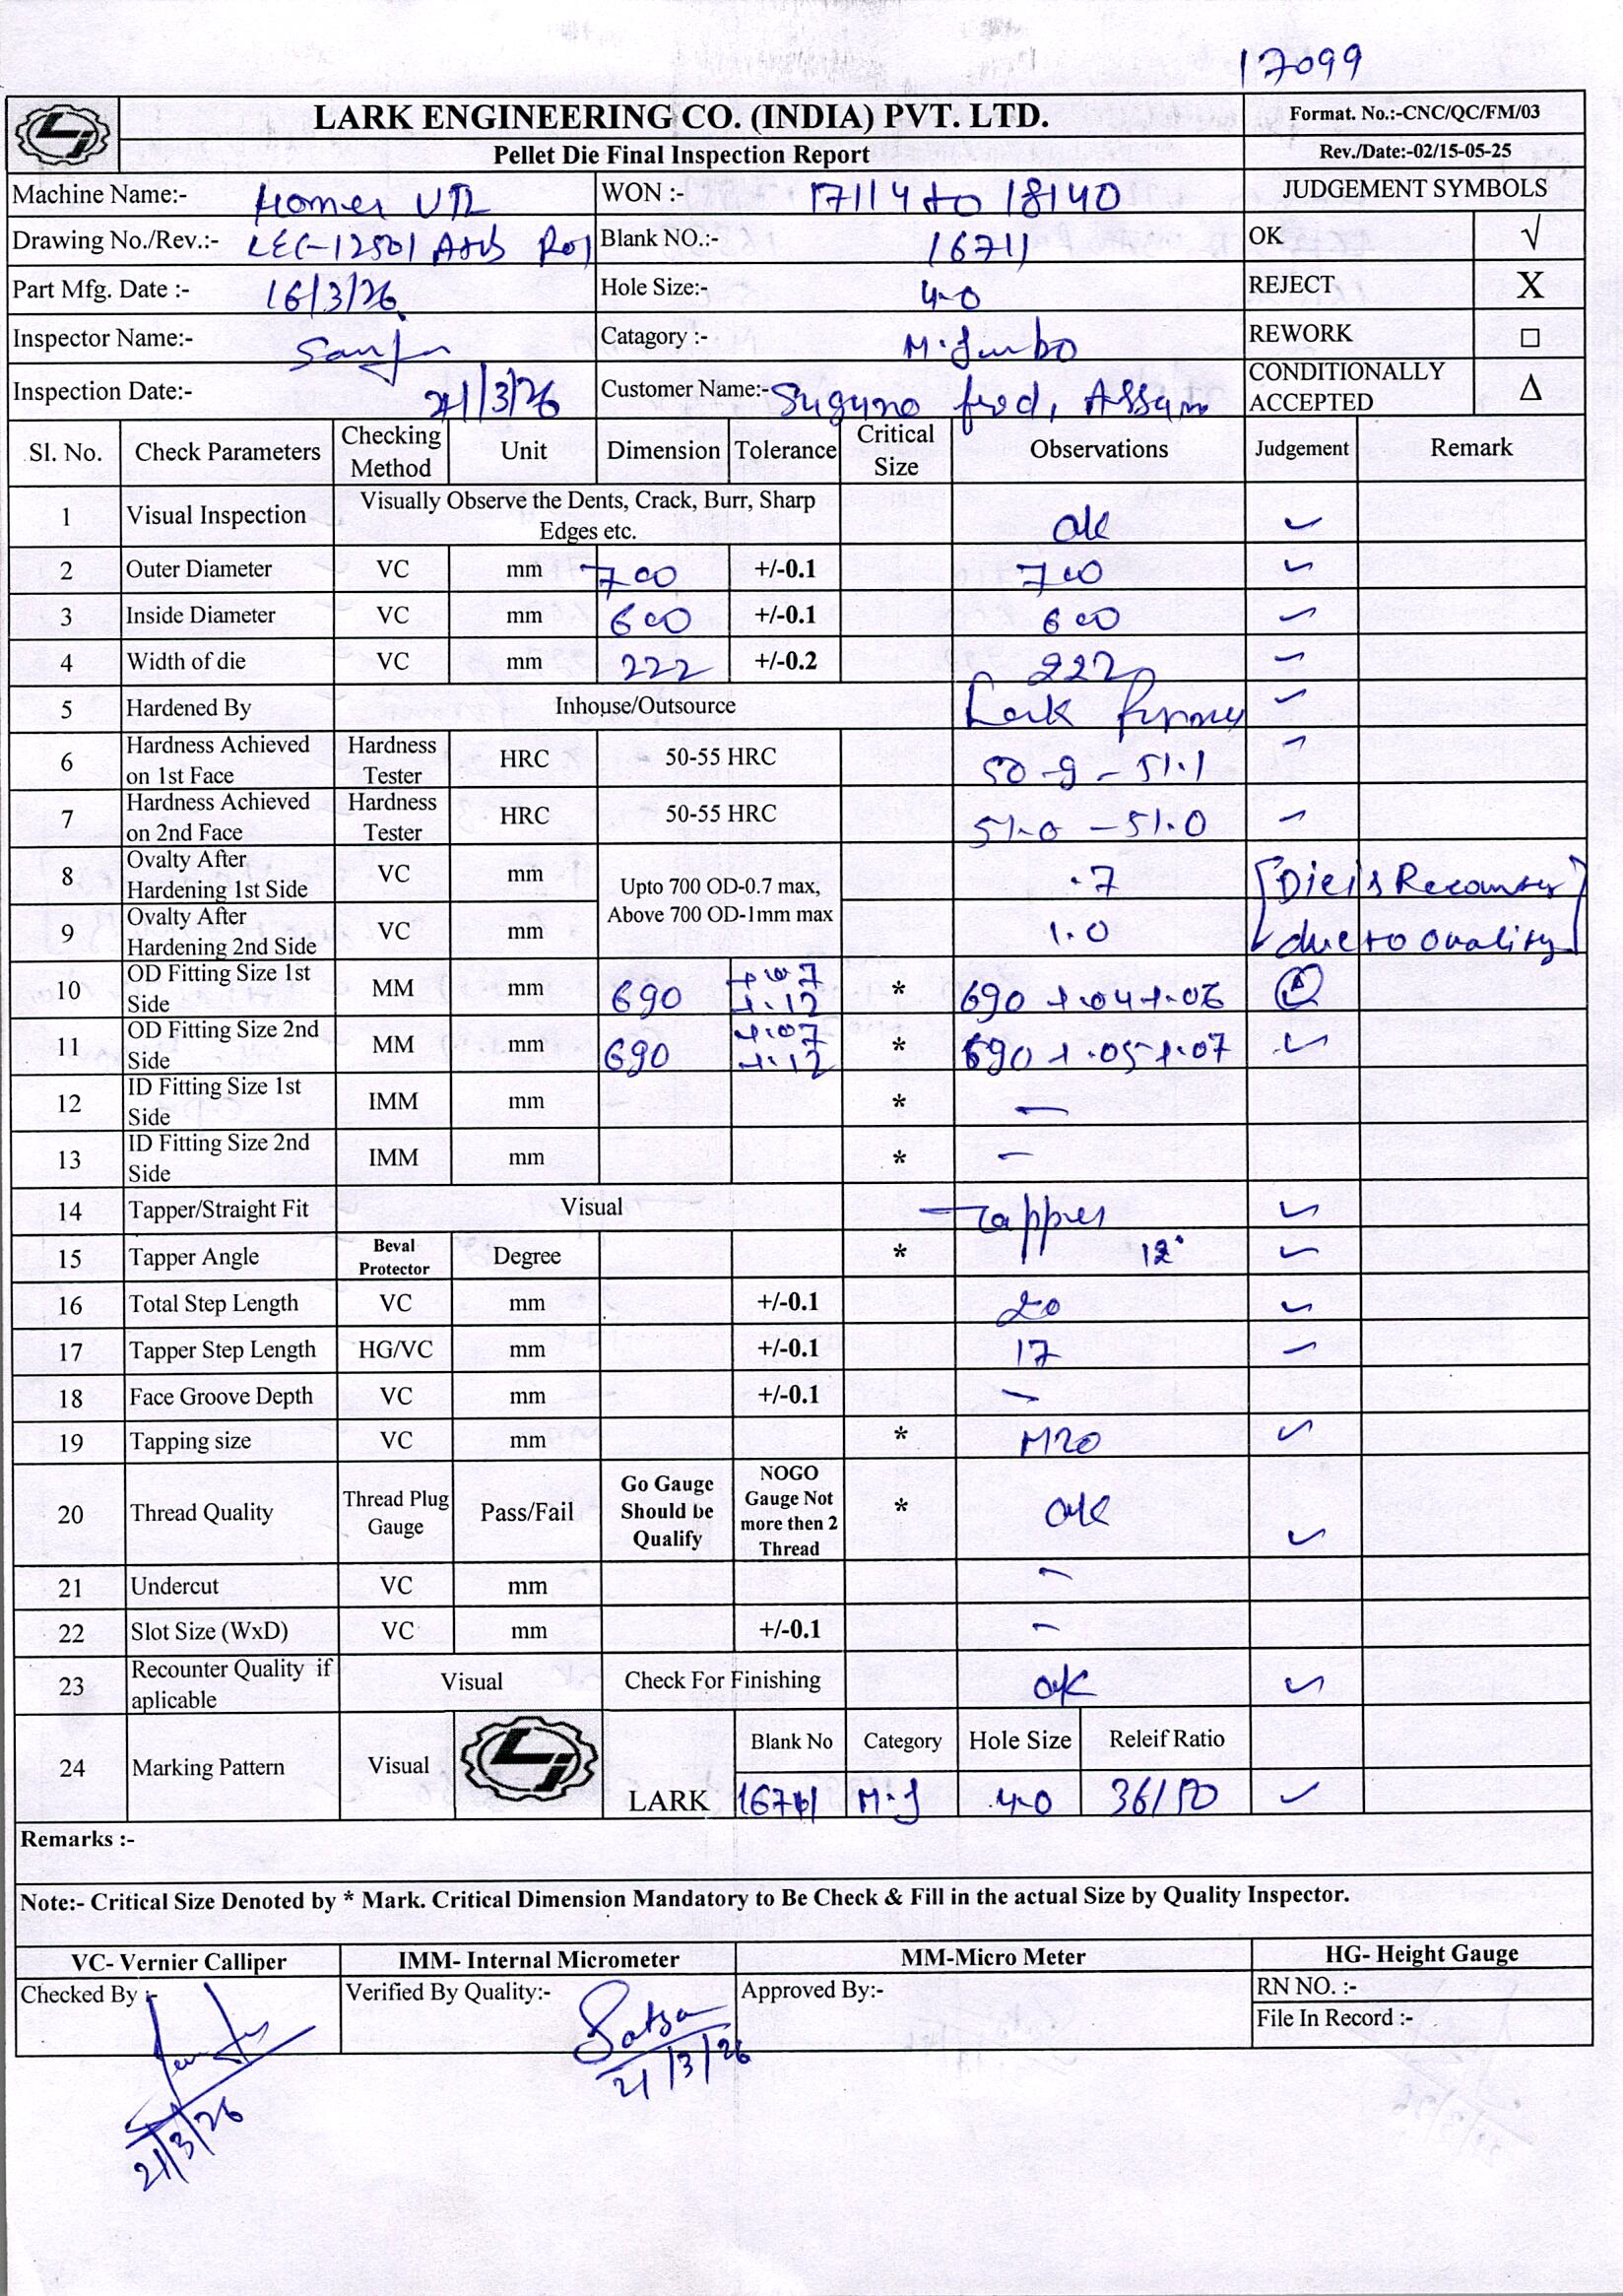 17099
LARK ENGINEERING CO. (INDIA) PVT. LTD. Format. No.:-CNC/QC/FM/03
Pellet Die Final Inspection Report Rev./Date:-02/15-05-25
Machine Name:- WON :- 17114 to 18140 JUDGEMENT SYMBOLS
Drawing No./Rev.:- LEC-12501 R01 Blank NO.:- 16711 OK √
Part Mfg. Date :- 16/3/26 Hole Size:- 4.0 REJECT X
Inspector Name:- Catagory :- M. Jumbo REWORK □
Inspection Date:- 21/3/26 Customer Name:- Suguna feed, Assam CONDITIONALLY ACCEPTED Δ
Sl. No. Check Parameters Checking Method Unit Dimension Tolerance Critical Size Observations Judgement Remark
1 Visual Inspection Visually Observe the Dents, Crack, Burr, Sharp Edges etc. ok ✓
2 Outer Diameter VC mm 700 +/-0.1 700 ✓
3 Inside Diameter VC mm 600 +/-0.1 600 ✓
4 Width of die VC mm 222 +/-0.2 222 ✓
5 Hardened By Inhouse/Outsource Lark ✓
6 Hardness Achieved on 1st Face Hardness Tester HRC 50-55 HRC 50.9 - 51.1 ✓
7 Hardness Achieved on 2nd Face Hardness Tester HRC 50-55 HRC 51.0 - 51.0 ✓
8 Ovalty After Hardening 1st Side VC mm Upto 700 OD-0.7 max, Above 700 OD-1mm max .7 [Die is Recounter
9 Ovalty After Hardening 2nd Side VC mm 1.0 due to ovality]
10 OD Fitting Size 1st Side MM mm 690 +.07 +.12 * 690 +.04 +.06 Δ
11 OD Fitting Size 2nd Side MM mm 690 +.07 +.12 * 690 +.05 +.07 ✓
12 ID Fitting Size 1st Side IMM mm * —
13 ID Fitting Size 2nd Side IMM mm * —
14 Tapper/Straight Fit Visual Tapper ✓
15 Tapper Angle Beval Protector Degree * 12° ✓
16 Total Step Length VC mm +/-0.1 20 ✓
17 Tapper Step Length HG/VC mm +/-0.1 17 ✓
18 Face Groove Depth VC mm +/-0.1 —
19 Tapping size VC mm * M20 ✓
20 Thread Quality Thread Plug Gauge Pass/Fail Go Gauge Should be Qualify NOGO Gauge Not more then 2 Thread * ok ✓
21 Undercut VC mm —
22 Slot Size (WxD) VC mm +/-0.1 —
23 Recounter Quality if aplicable Visual Check For Finishing ok ✓
24 Marking Pattern Visual LARK Blank No Category Hole Size Releif Ratio
16711 M.J 4.0 36/50 ✓
Remarks :-
Note:- Critical Size Denoted by * Mark. Critical Dimension Mandatory to Be Check & Fill in the actual Size by Quality Inspector.
VC- Vernier Calliper IMM- Internal Micrometer MM-Micro Meter HG- Height Gauge
Checked By :- Verified By Quality:- Approved By:- RN NO. :-
File In Record :-
21/3/26
21/3/26